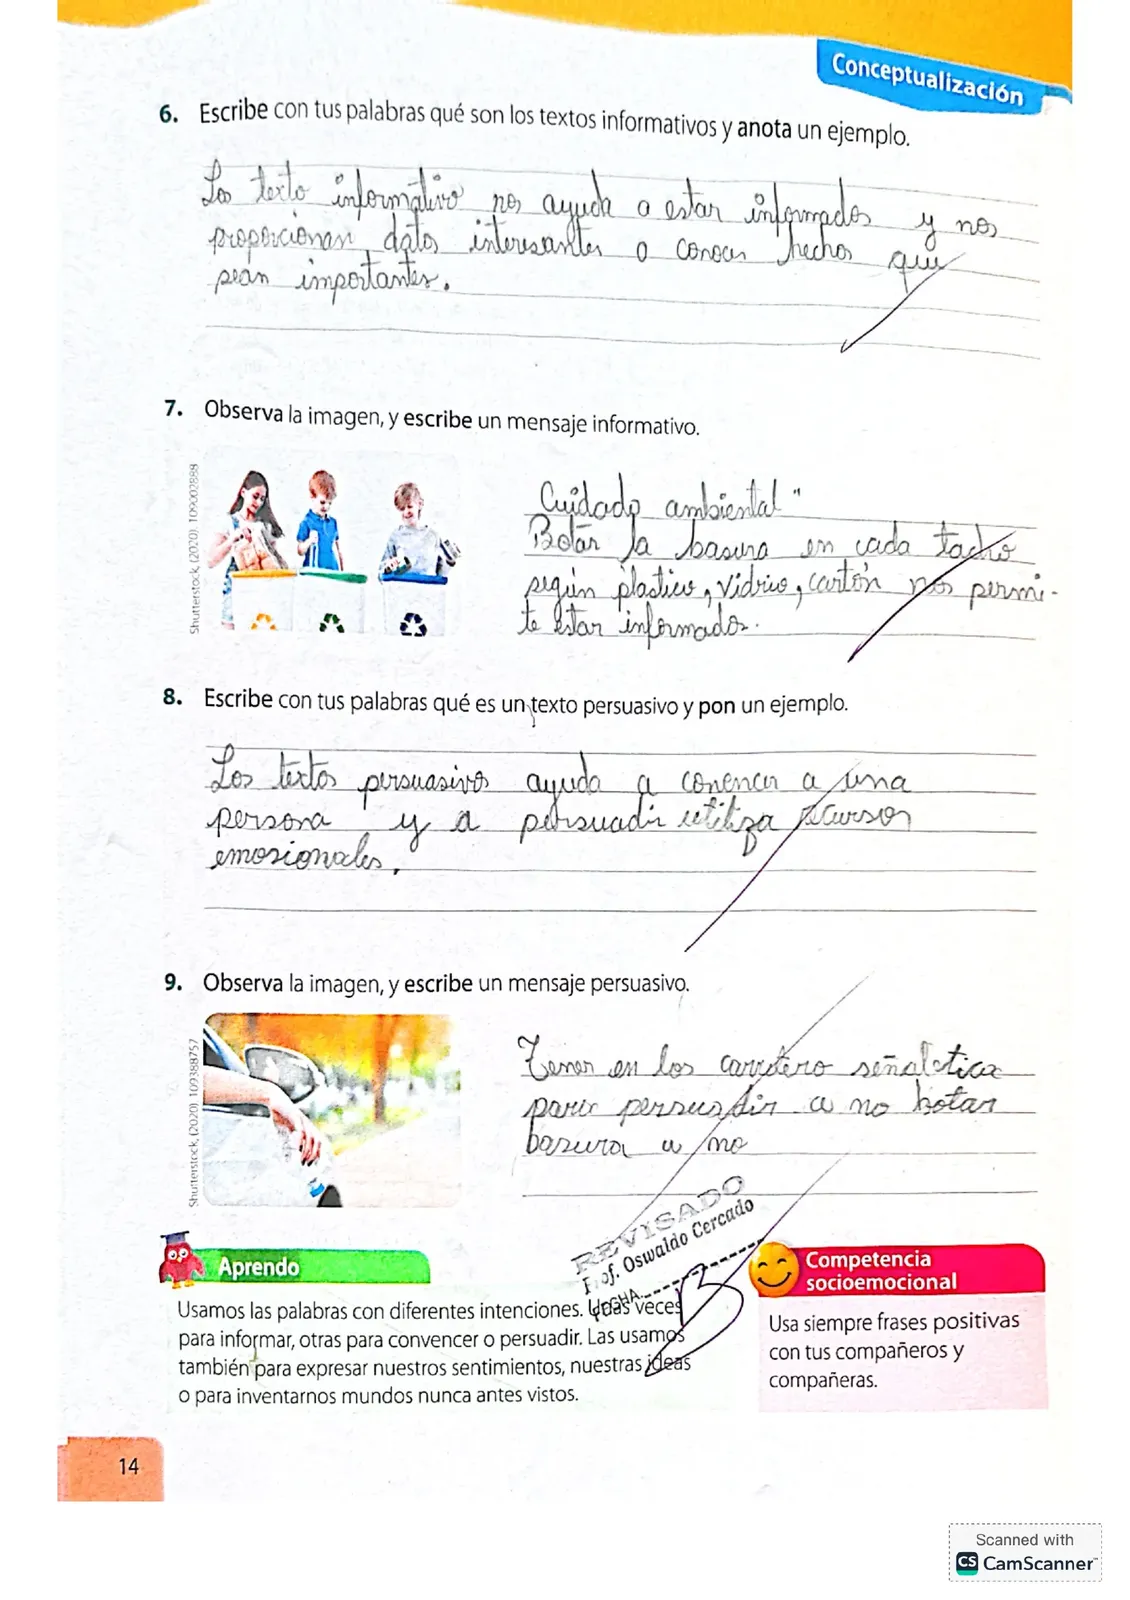 Conceptualización
6. Escribe con tus palabras qué son los textos informativos y anota un ejemplo.
Los texto informativo nos ayuda a estar informados y nos
proporcionan datos interesantes o conocer hechos que
sean importantes.
7. Observa la imagen, y escribe un mensaje informativo.
Shutterstock, (2020). 109002888
Cuidado ambiental"
Botar la basura en cada tacho
según plastico, vidrio, cartón nos permi-
te estar informados.
8. Escribe con tus palabras qué es un texto persuasivo y pon un ejemplo.
Los textos persuasivos ayuda a conencer a una
persona y a persuadir utiliza recursos
emosionales.
9. Observa la imagen, y escribe un mensaje persuasivo.
Shutterstock, (2020). 109388757
Tener en los carretero señaletica
para persuadir a no botar
basura a no
REVISADO
Prof. Oswaldo Cercado
FECHA
Aprendo
Usamos las palabras con diferentes intenciones. Unas veces
para informar, otras para convencer o persuadir. Las usamos
también para expresar nuestros sentimientos, nuestras ideas
o para inventarnos mundos nunca antes vistos.
Competencia
socioemocional
Usa siempre frases positivas
con tus compañeros y
compañeras.
14
Scanned with
CS CamScanner